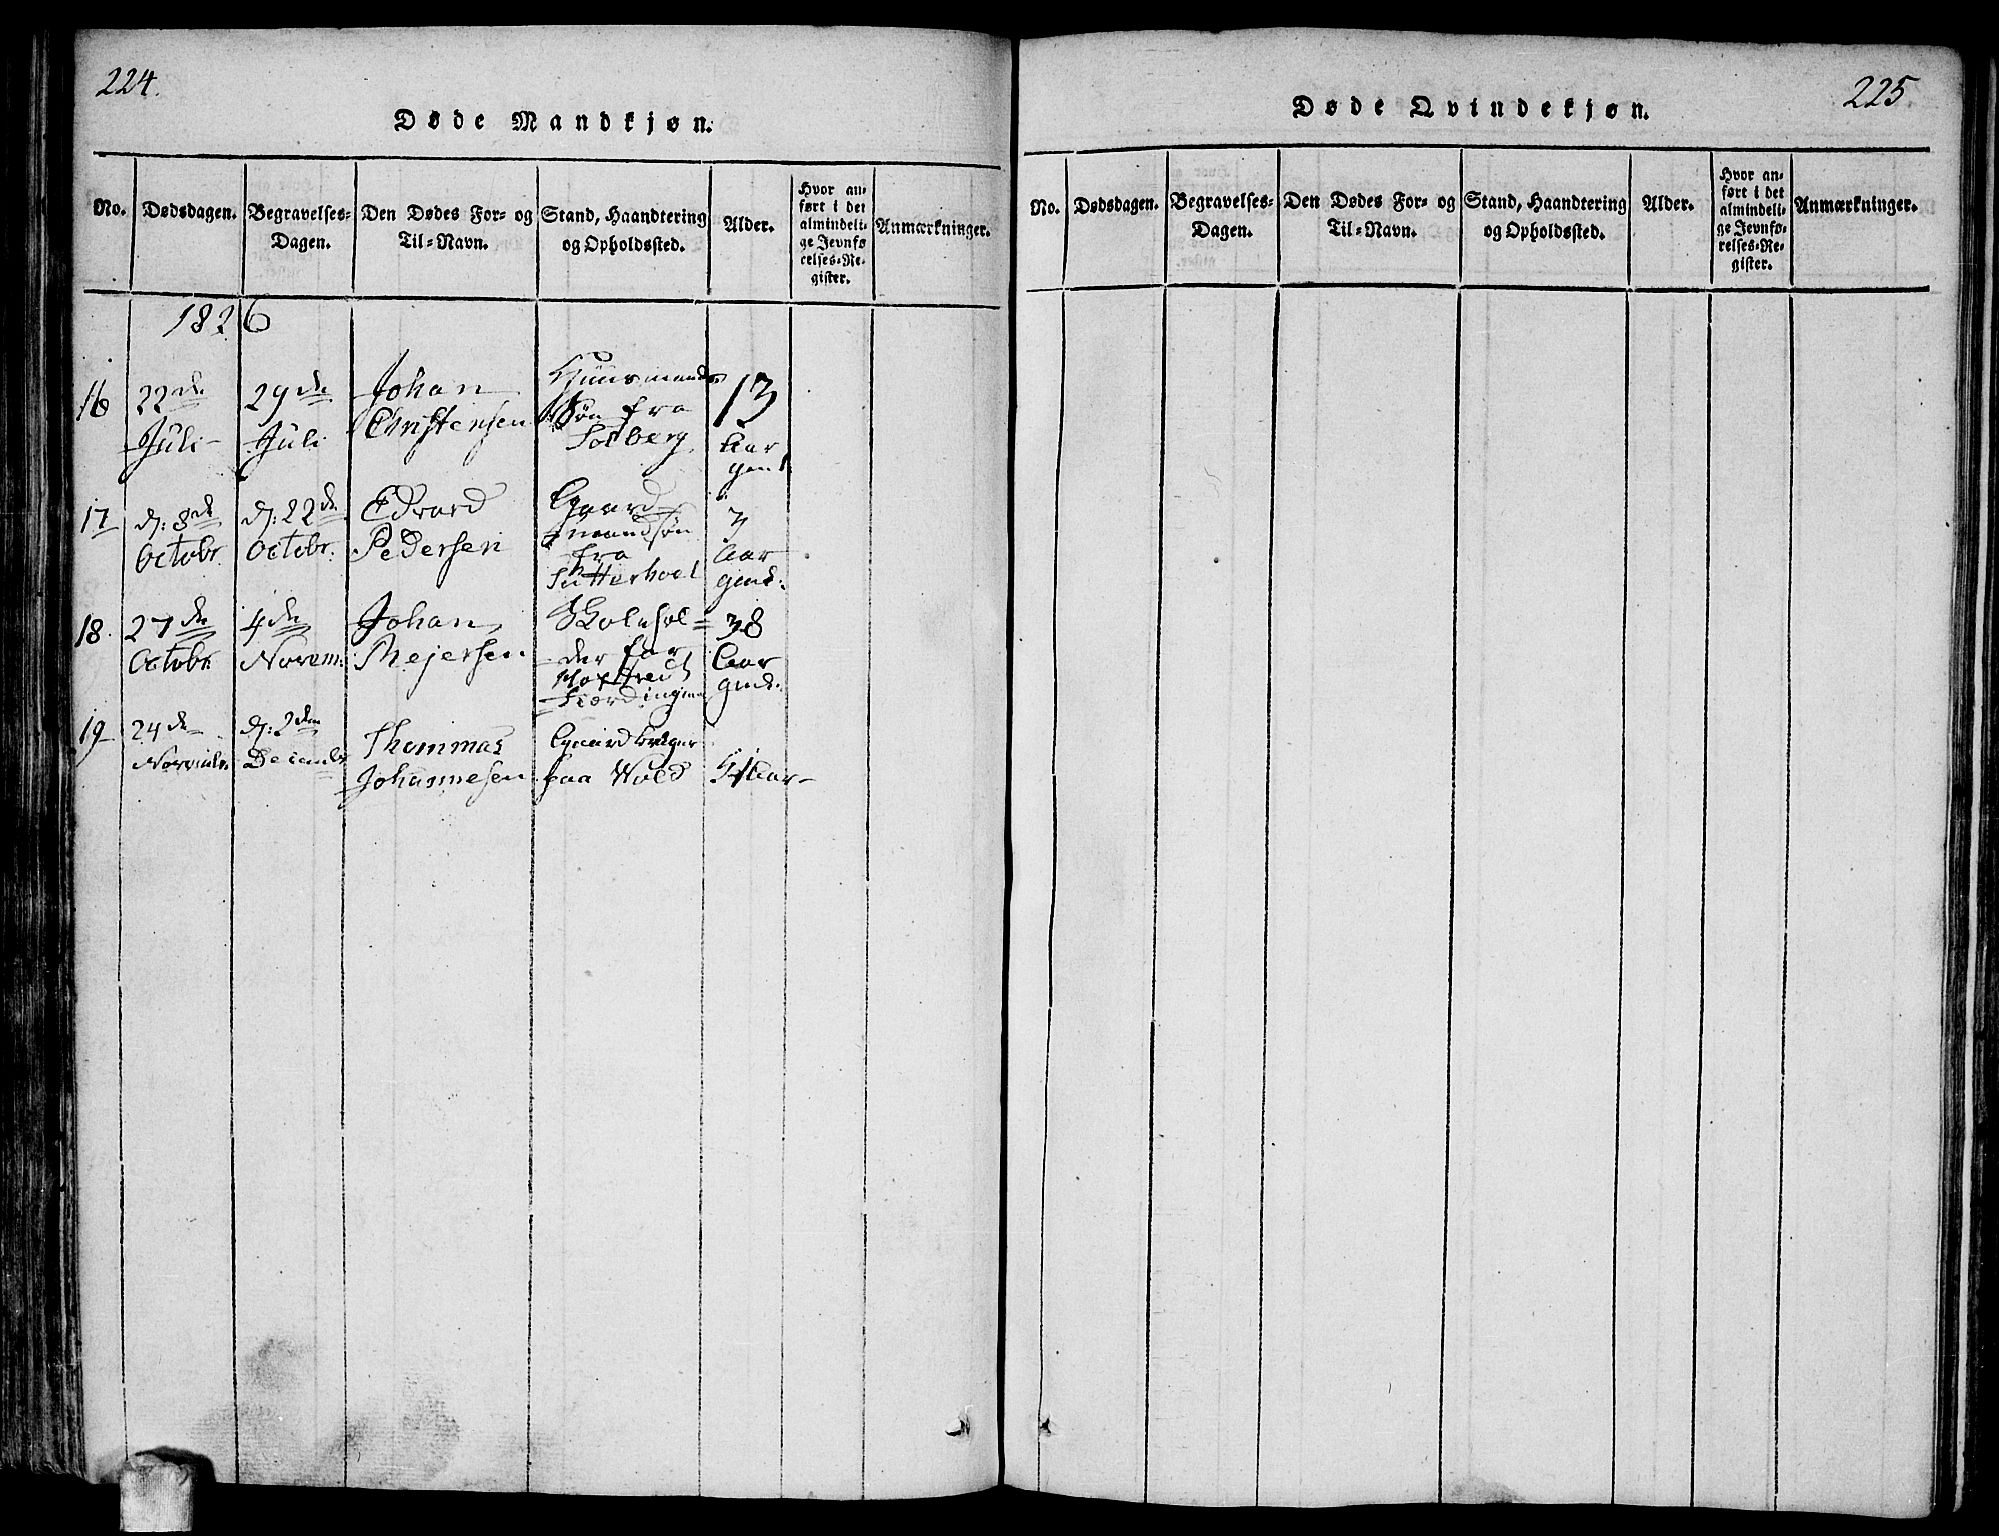 224.
Døde Mandkjøn.
No.
Dødsdagen.
Begravelses-
Dagen.
Den Dødes For- og
Til-Navn.
Stand, Haandtering
og Opholdssted.
Alder.
Hvor an-
ført i det
almindeli-
ge Jevnfø
relses-Re-
gister.
Anmærkninger.
1826
16
22de
Juli
29de
Juli
Johan
Christensen
Huusmands
Søn fra
Solberg
13
Aar
gml
17
d: 8de
Octobr.
d: 22de
Octobr.
Edvard
Pedersen
Gaard
mandsøn
fra
Aar
gml:
18.
27de
Octobr.
4de
Novem:
Johan
Mejersen
Skolehol=
der
38
Aar
gml:
19
24de
d: 2den
Decembr
Thommas
Johannesen
Gaardbruger
paa Wold
Aar
225
Døde Qvindekjøn.
No.
Dødsdagen.
Begravelses-
Dagen.
Den Dødes For- og
Til-Navn.
Stand, Haandtering
og Opholdssted.
Alder.
Hvor an-
ført i det
almindeli-
ge Jevnfø-
relses-Re-
gister.
Anmærkninger.